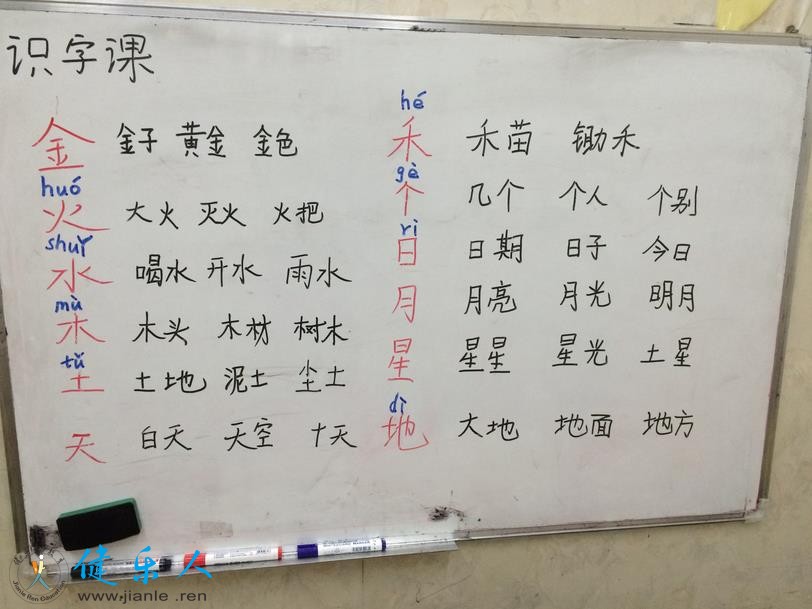 识字课
金 金子 黄金 金色
huó
火 大火 灭火 火把
shuǐ
水 喝水 开水 雨水
mù
木 木头 木材 树木
tǔ
土 土地 泥土 尘土
天 白天 天空 十天
hé
禾 禾苗 锄禾
gè
个 几个 个人 个别
rì
日 日期 日子 今日
月 月亮 月光 明月
星 星星 星光 土星
dì
地 大地 地面 地方
健乐人
www.jianle .ren